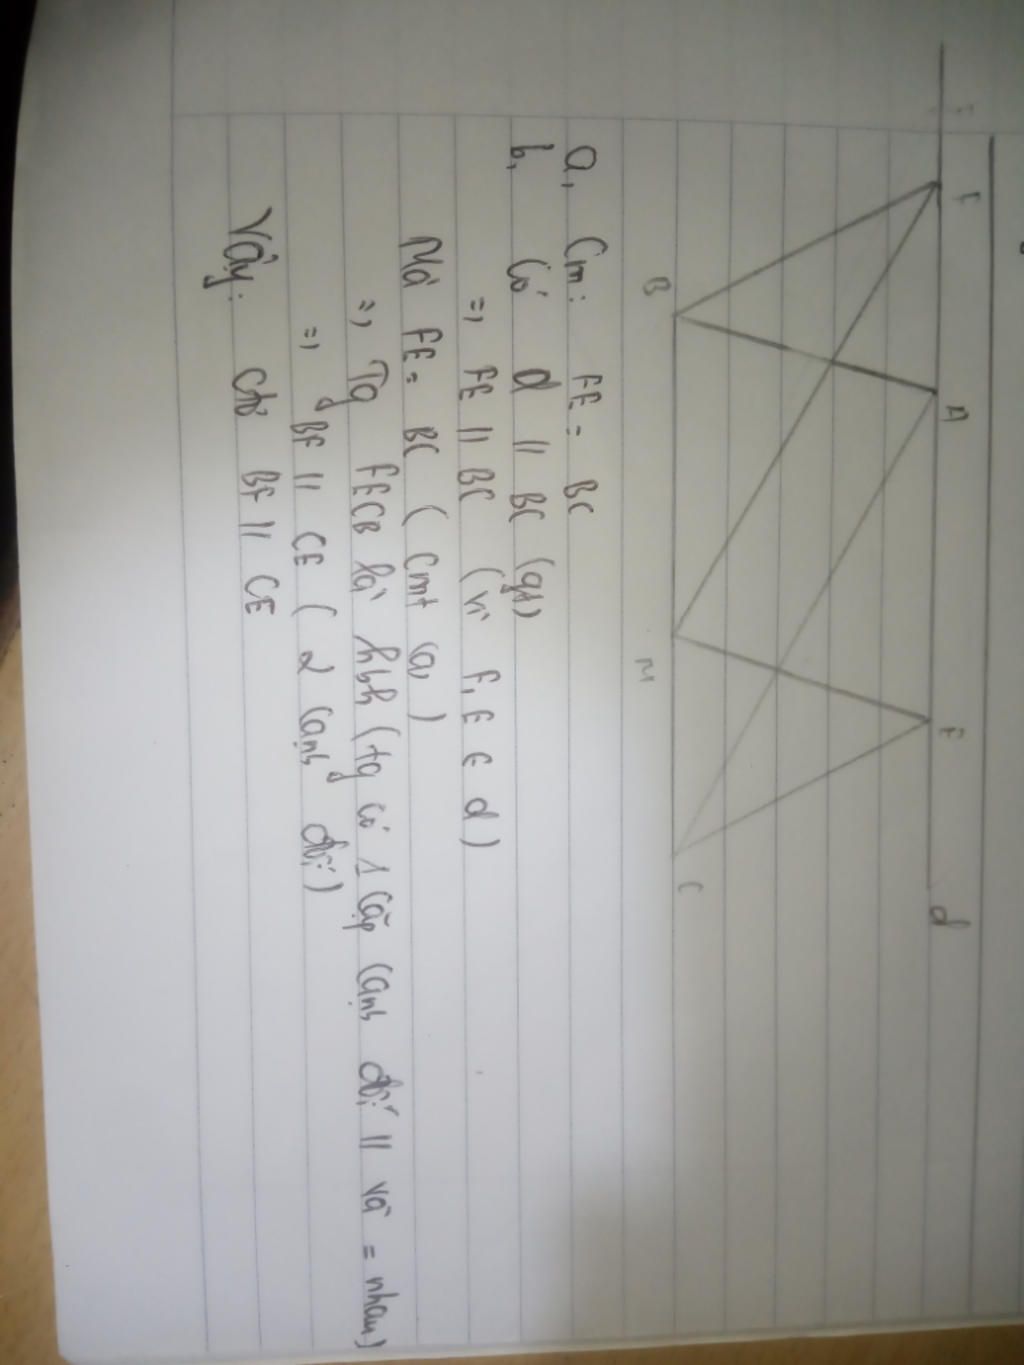 F A E d
B M C
a, Cm: FE = BC
b, Có d // BC (gt)
=, FE // BC (vì F, E ∈ d)
Mà FE = BC (cmt (a,)
=, Tg FECB là hbh (tg có 1 cặp cạnh đối // và = nhau)
=, BF // CE (2 cạnh đối)
Vậy: BF // CE